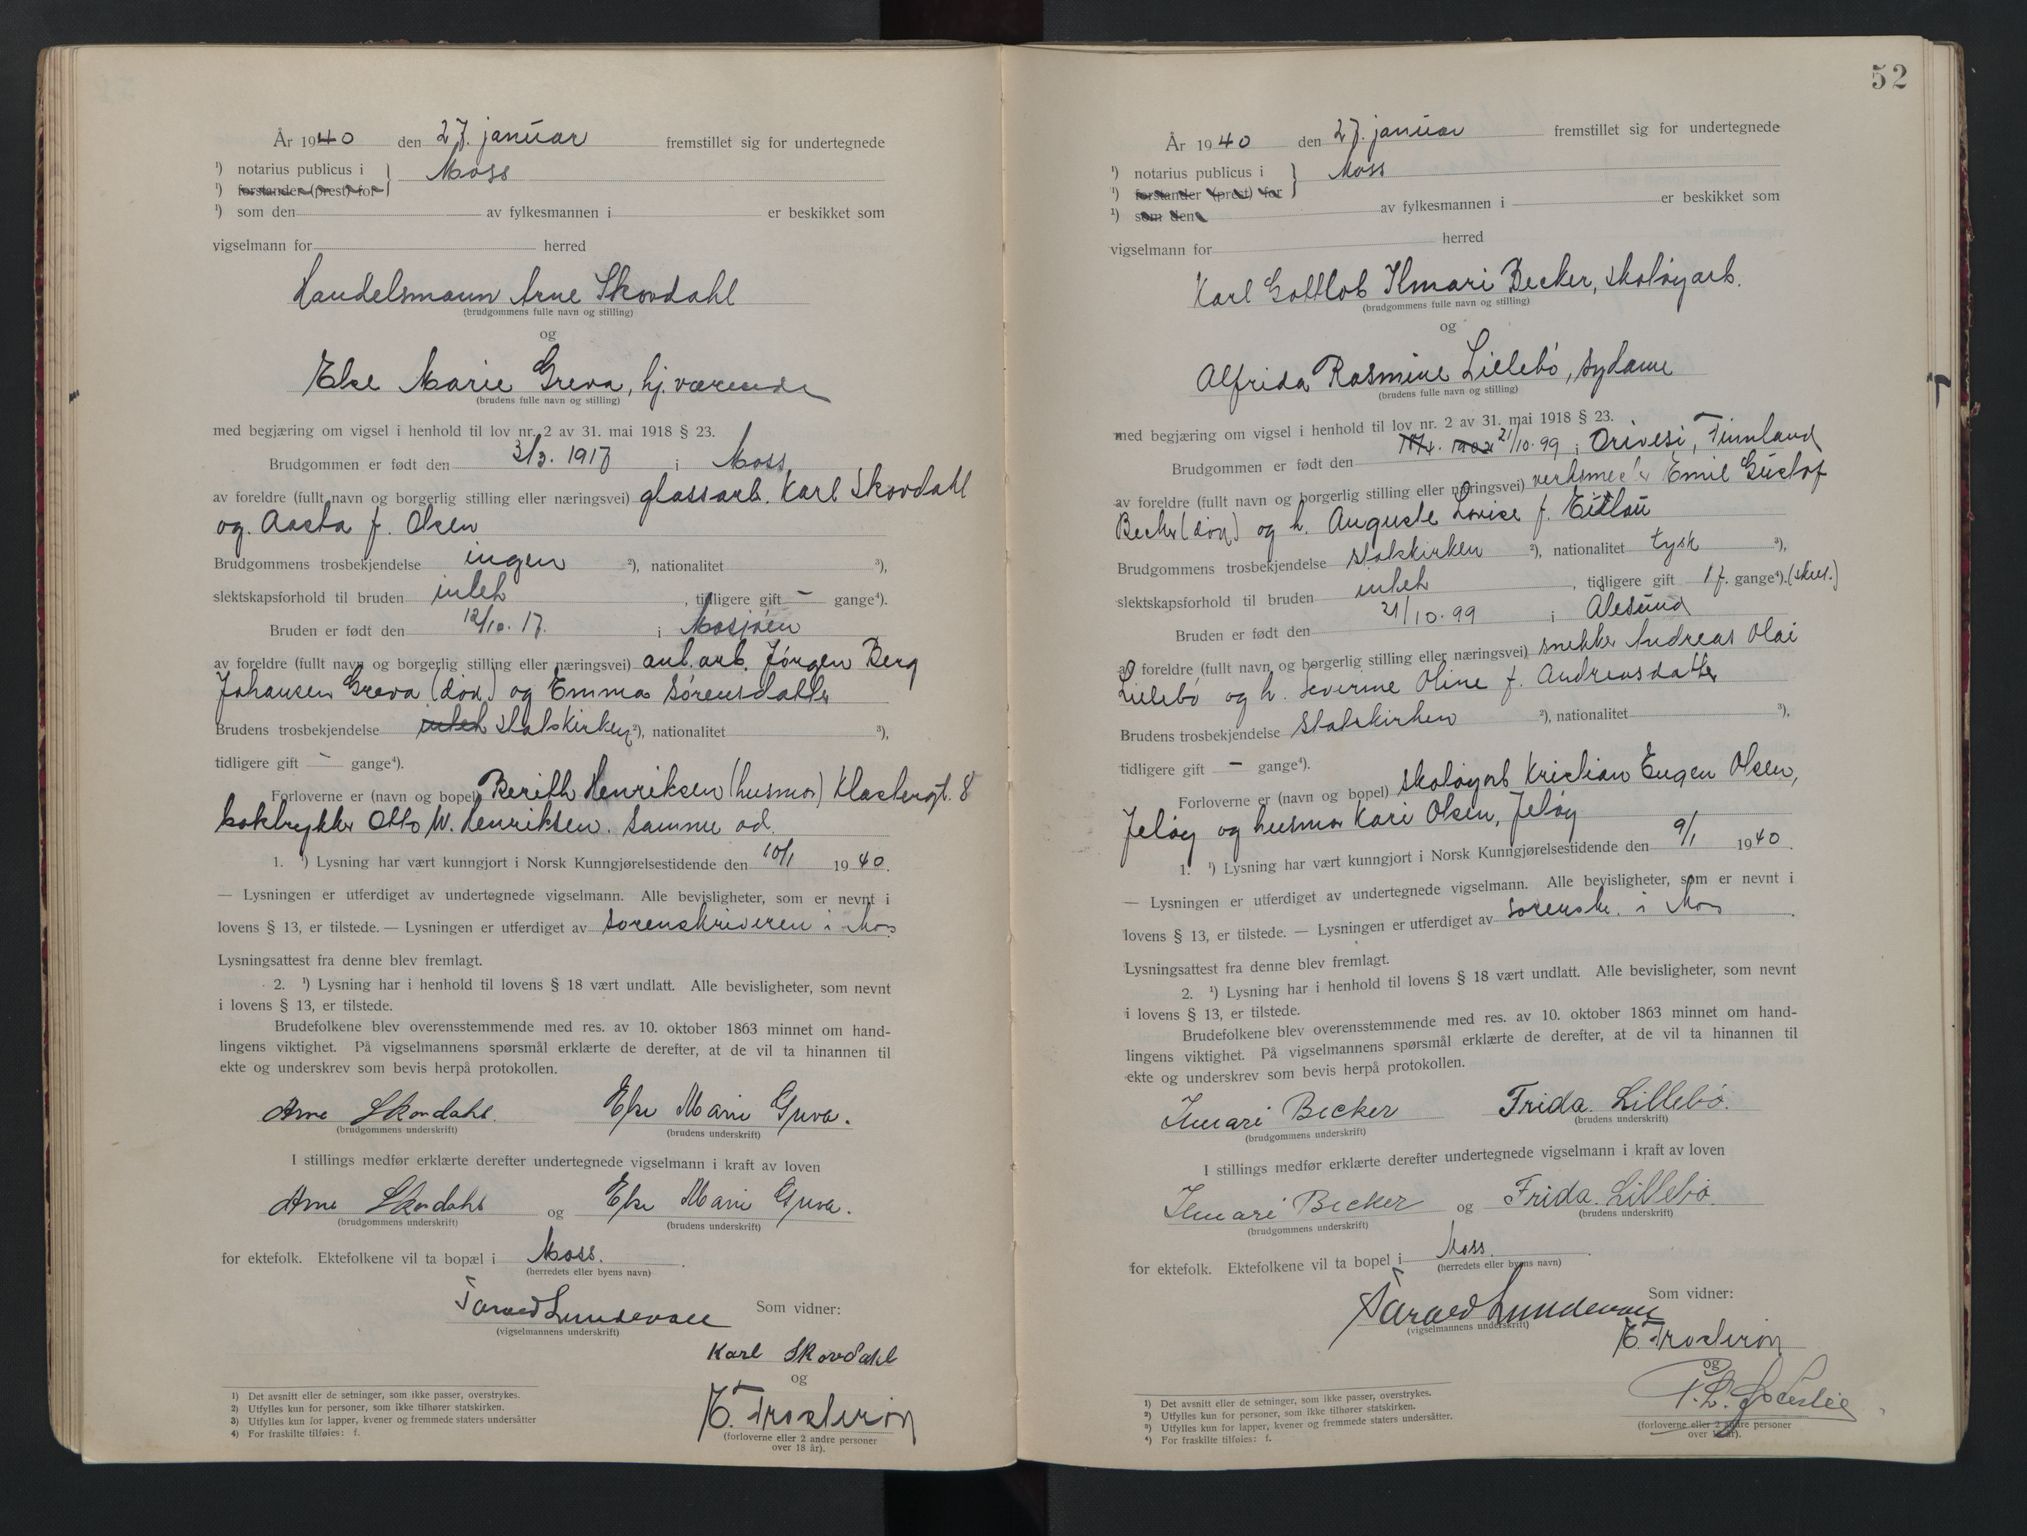 År 1940 den 27. januar fremstillet sig for undertegnede
¹) notarius publicus i } Moss
¹) forstander (prest) for
¹) som den av fylkesmannen i er beskikket som
vigselmann for herred
Handelsmann Arne Skovdahl
(brudgommens fulle navn og stilling)
og
Else Marie Greva, hj.værende
(brudens fulle navn og stilling)
med begjæring om vigsel i henhold til lov nr. 2 av 31. mai 1918 § 23.
Brudgommen er født den 3/3. 1917 i Moss
av foreldre (fullt navn og borgerlig stilling eller næringsvei) glassarb. Karl Skovdahl
og Aasta f. Olsen
Brudgommens trosbekjendelse ingen ²), nationalitet ³),
slektskapsforhold til bruden intet , tidligere gift – gange⁴).
Bruden er født den 12/10. 17. i Mosjøen
av foreldre (fullt navn og borgerlig stilling eller næringsvei) anl.arb. Jørgen Berg
Johansen Greva (død) og Emma Sørensdatter
Brudens trosbekjendelse intet statskirken ²), nationalitet ³),
tidligere gift – gange⁴).
Forloverne er (navn og bopel) Berith Henriksen (husmor) Klostergt. 8
boktrykker Otto W. Henriksen. samme ad.
1. ¹) Lysning har vært kunngjort i Norsk Kunngjørelsestidende den 10/1 1940.
— Lysningen er utferdiget av undertegnede vigselmann. Alle bevisligheter, som er nevnt i
lovens § 13, er tilstede. — Lysningen er utferdiget av sorenskriveren i Moss
Lysningsattest fra denne blev fremlagt.
2. ¹) Lysning har i henhold til lovens § 18 vært undlatt. Alle bevisligheter, som nevnt
i lovens § 13, er tilstede.
Brudefolkene blev overensstemmende med res. av 10. oktober 1863 minnet om hand-
lingens viktighet. På vigselmannens spørsmål erklærte de derefter, at de vil ta hinannen til
ekte og underskrev som bevis herpå protokollen.
Arne Skovdahl. Else Marie Greva.
(brudgommens underskrift) (brudens underskrift)
I stillings medfør erklærte derefter undertegnede vigselmann i kraft av loven
Arne Skovdahl og Else Marie Greva.
(brudgommens underskrift) (brudens underskrift)
for ektefolk. Ektefolkene vil ta bopæl i Moss.
(herredets eller byens navn)
Tarald Lundevall Som vidner:
(vigselmannens underskrift)
Karl Skovdahl
og
E. Trosterin
(forloverne eller 2 andre personer
over 18 år).
1) Det avsnitt eller de setninger, som ikke passer, overstrykes.
2) Utfylles kun for personer, som ikke tilhører statskirken.
3) Utfylles kun for lapper, kvener og fremmede staters undersåtter
4) For fraskilte tilføies: f.
52
År 1940 den 27. januar fremstillet sig for undertegnede
¹) notarius publicus i } Moss
¹) forstander (prest) for
¹) som den av fylkesmannen i er beskikket som
vigselmann for herred
Karl Gottlob Ilmari Becker, skotøyarb.
(brudgommens fulle navn og stilling)
og
Alfrida Rasmine Lillebö, sydame
(brudens fulle navn og stilling)
med begjæring om vigsel i henhold til lov nr. 2 av 31. mai 1918 § 23.
Brudgommen er født den 21/10. 99 i Orivesi, Finnland
av foreldre (fullt navn og borgerlig stilling eller næringsvei) verksmester Emil Gustaf
Becker (död) og h. Auguste Lovise f.
Brudgommens trosbekjendelse statskirken ²), nationalitet tysk ³),
slektskapsforhold til bruden intet , tidligere gift 1 f. gange⁴).
Bruden er født den 21/10. 99 i Ålesund
av foreldre (fullt navn og borgerlig stilling eller næringsvei) snekker Andreas Olai
Lillebö og h. Severine Oline f. Andreasdatter
Brudens trosbekjendelse statskirken ²), nationalitet ³),
tidligere gift – gange⁴).
Forloverne er (navn og bopel) skotøyarb Kristian Eugen Olsen,
Jeløy og husmor Kari Olsen, Jeløy
1. ¹) Lysning har vært kunngjort i Norsk Kunngjørelsestidende den 9/1 1940.
— Lysningen er utferdiget av undertegnede vigselmann. Alle bevisligheter, som er nevnt i
lovens § 13, er tilstede. — Lysningen er utferdiget av sorenskr. i Moss
Lysningsattest fra denne blev fremlagt.
2. ¹) Lysning har i henhold til lovens § 18 vært undlatt. Alle bevisligheter, som nevnt
i lovens § 13, er tilstede.
Brudefolkene blev overensstemmende med res. av 10. oktober 1863 minnet om hand-
lingens viktighet. På vigselmannens spørsmål erklærte de derefter, at de vil ta hinannen til
ekte og underskrev som bevis herpå protokollen.
Ilmari Becker Frida Lillebö.
(brudgommens underskrift) (brudens underskrift)
I stillings medfør erklærte derefter undertegnede vigselmann i kraft av loven
Ilmari Becker og Frida Lillebö.
(brudgommens underskrift) (brudens underskrift)
for ektefolk. Ektefolkene vil ta bopel i Moss.
(herredets eller byens navn)
Tarald Lundevall Som vidner:
(vigselmannens underskrift)
E. Trosterin
og
(forloverne eller 2 andre personer
over 18 år).
1) Det avsnitt eller de setninger, som ikke passer, overstrykes.
2) Utfylles kun for personer, som ikke tilhører statskirken.
3) Utfylles kun for lapper, kvener og fremmede staters undersåtter.
4) For fraskilte tilføies: f.